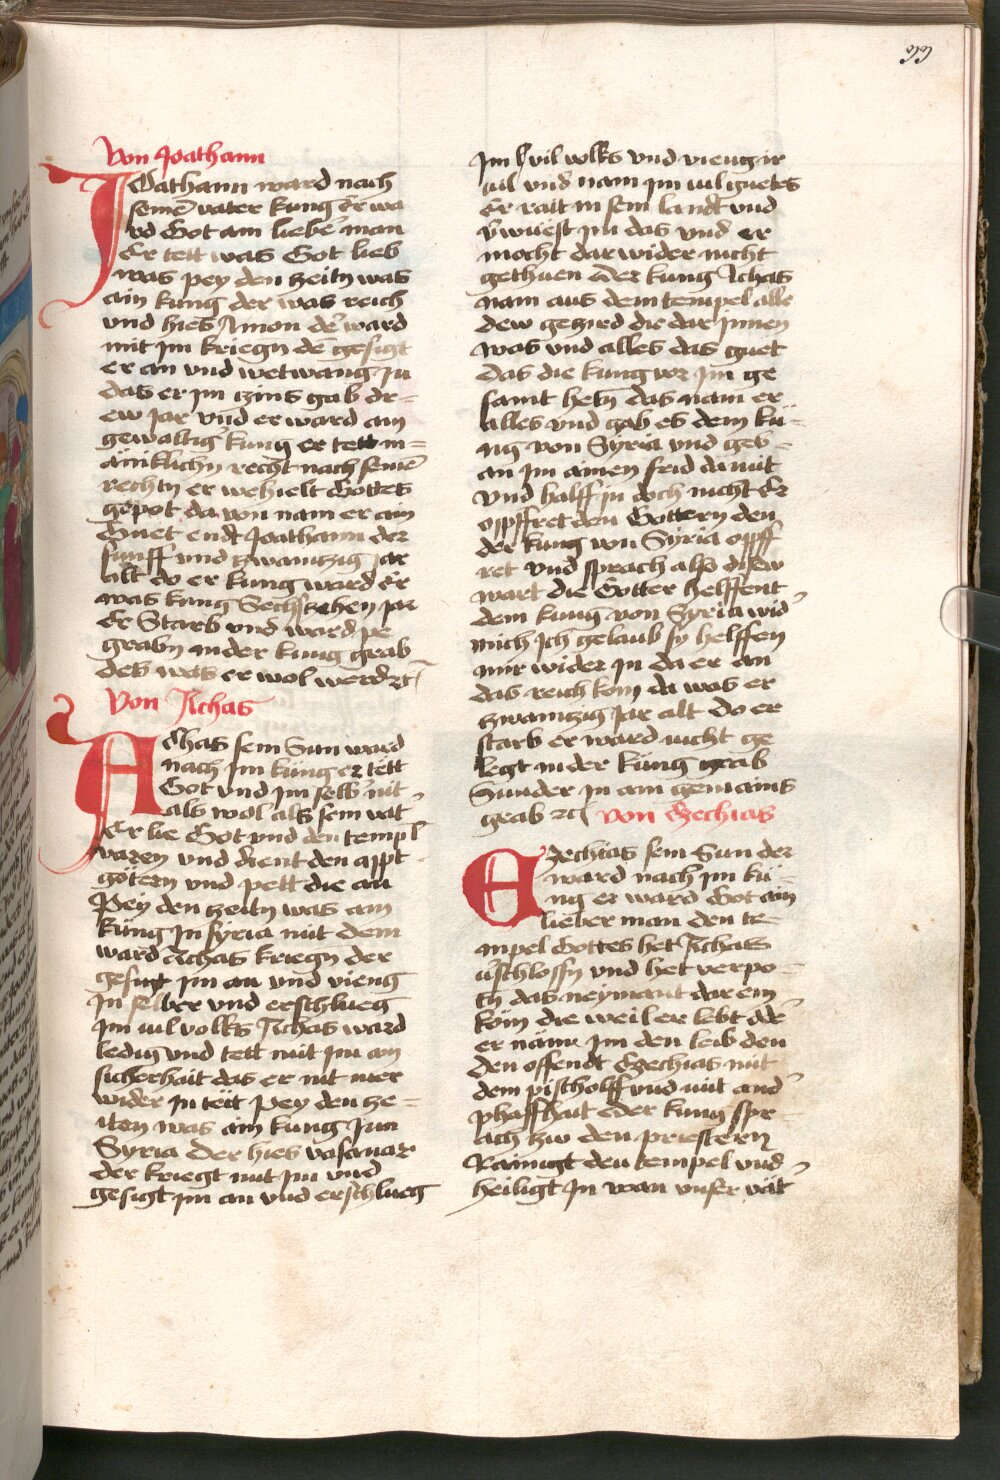 99
Von Joathann
JOathann ward nach
seinē vater kung Er wa
rd Got ain lieber man
Er tett was Got lieb
was pey den zeitn was
ain kung der was reich
vnd hies Amon der ward
mit im kriegn dē gesigt
er an vnd wetwang In
das er im zins gab dr=
ew Jar vnd er ward ain
gewaltig kung er tett m=
äniklichn recht nach seinē
rechtn er wehielt Gottes
gepot da von nam er ain
Guet endt Joathann der
funff vnd zwainczig Jar
alt do er kung ward Er
was kung Sechszehen Jar
Er Starb vnd ward pe
grabn in der kung grab
des was er wol werd ꝛc
Von Achas
AChas sein Sun ward
nach im küng er tett
Got vnd im selbs nit
als wol als sein vat'
Er lie Got vnd den templ
varen vnd dient den appt
götern vnd pett die an
Pey den zeitn was ain
küng In syria mit dem
ward Achas kriegn der
gesigt im an vnd vieng
In selber vnd erschlueg
im vil volks Achas ward
ledig vnd tett mit im ain
sicherhait das er nit mer
wider In tëtt Pey den ze=
iten was ain kung Inn
Syria Der hies vasanar
der kriegt mit im vnd
gesigt im an vnd erschlueg
Im vil volks vnd vieng ir
vil vnd nam im vil guetes
Er rait in sein landt vnd
v'wuest im das vnd er
mocht dar wider nicht
gethuen Der kung Achas
nam aus dem tempel alle
dew gezird die dar jnnen
was vnd alles das guet
das die kung vor im ge
samt hetn das nam er
alles vnd gab es dem kü=
ng von Syria vnd geb=
an im ainen frid damit
vnd halff in doch nicht Er
oppffret den Gottern den
der kung von Syria opff
ret vnd sprach also disew
wart die Gotter helffent
dem kung von Syria wid'
mich Ich gelaub sy helffen
mir wider in da er an
das reich kom da was er
zwainczig Jar alt Do er
starb er ward nicht ge
legt in der küng grab
Sunder in ain gemains
grab ꝛc von Ezechias
EZechias sein Sun der
ward nach im kü=
ng er ward Got ain
lieber man den te=
mpel Gottes het Achas
v'schlossn vnd het verpo=
tn das neymant dar ein
köm die weil er lebt oder
er näm im den leib den
den offendt Ezechias mit
dem pischolff vnd mit and'
phaffhait Der kung spr=
ach zw den priestern
Rainigt den tempel vnd
heiligt In wan vnser vät'